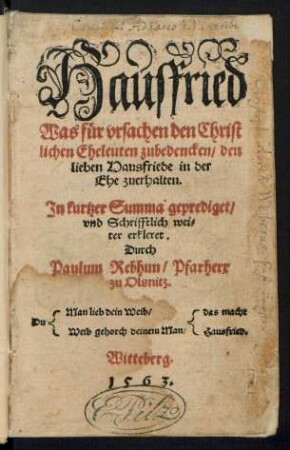 Hausfried
Was für vrsachen den Christ
lichen Eheleuten zubedencken/ den
lieben Hausfriede in der
Ehe zuerhalten.
In kurtzer Summa geprediget/
vnd Schrifftlich wei-
ter erkleret.
Durch
Paulum Rebhun/ Pfarherr
zu Olsnitz.
Du { Man lieb dein Weib/ } das macht
Weib gehorch deinem Man/ Hausfried.
Witteberg.
1 5 6 3.